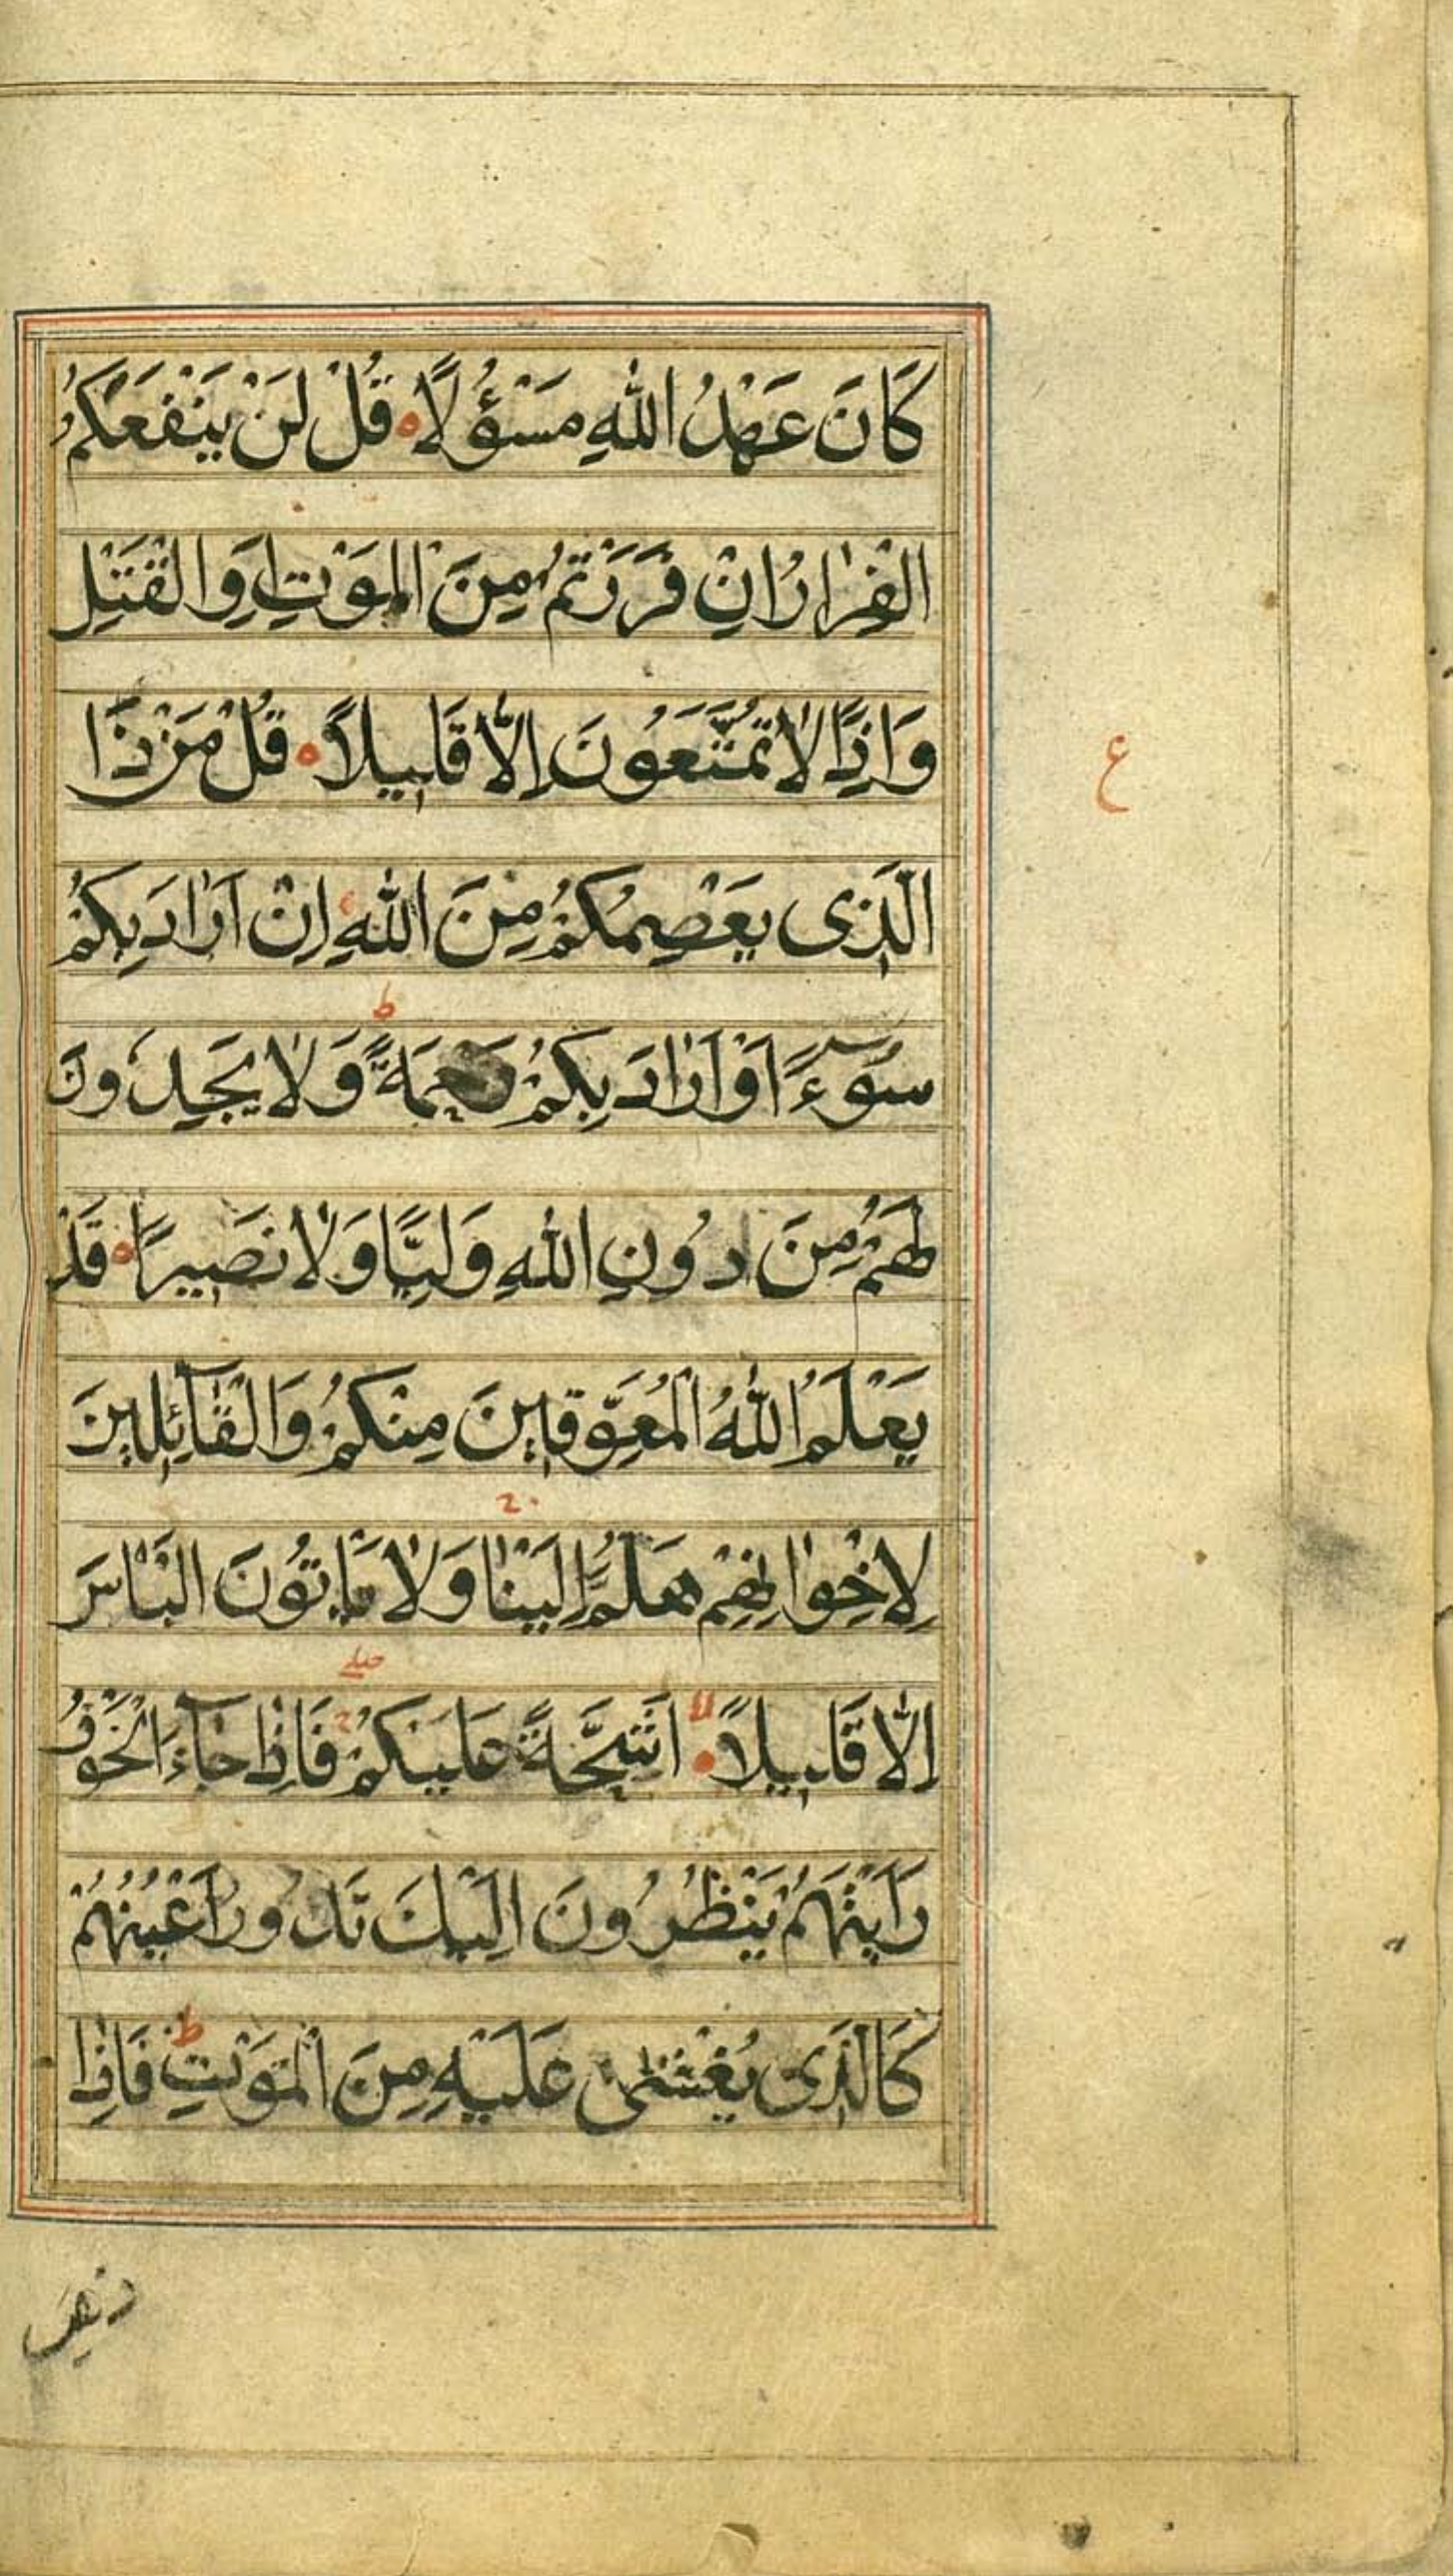 كَانَ عَهْدُ اللهِ مَسْؤُلًا ه قُلْ لَنْ يَنْفَعَكُمُ
الْفِرَارُ اِنْ فَرَرْتُمْ مِنَ الْمَوْتِ اَوِ الْقَتْلِ
وَاِذًا لَا تُمَتَّعُونَ اِلَّا قَلِيلًا ه قُلْ مَنْ ذَا
ع
الَّذِى يَعْصِمُكُمْ مِنَ اللهِ اِنْ اَرَادَ بِكُمْ
ط
سُوٓءً اَوْ اَرَادَ بِكُمْ رَحْمَةً وَلَا يَجِدُونَ
لَهُمْ مِنَ دُونِ اللهِ وَلِيًّا وَلَا نَصِيرًا ه قَدْ
يَعْلَمُ اللهُ الْمُعَوِّقِينَ مِنْكُمْ وَالْقَآئِلِينَ
لِاِخْوَانِهِمْ هَلُمَّ اِلَيْنَا وَلَا يَاْتُونَ الْبَاْسَ
اِلَّا قَلِيلًا لا اَشِحَّةً عَلَيْكُمْ فَاِذَا جَآءَ الْخَوْفُ
رَاَيْتَهُمْ يَنْظُرُونَ اِلَيْكَ تَدُورُ اَعْيُنُهُمْ
كَالَّذِى يُغْشٰى عَلَيْهِ مِنَ الْمَوْتِ ط فَاِذَا
ذهب